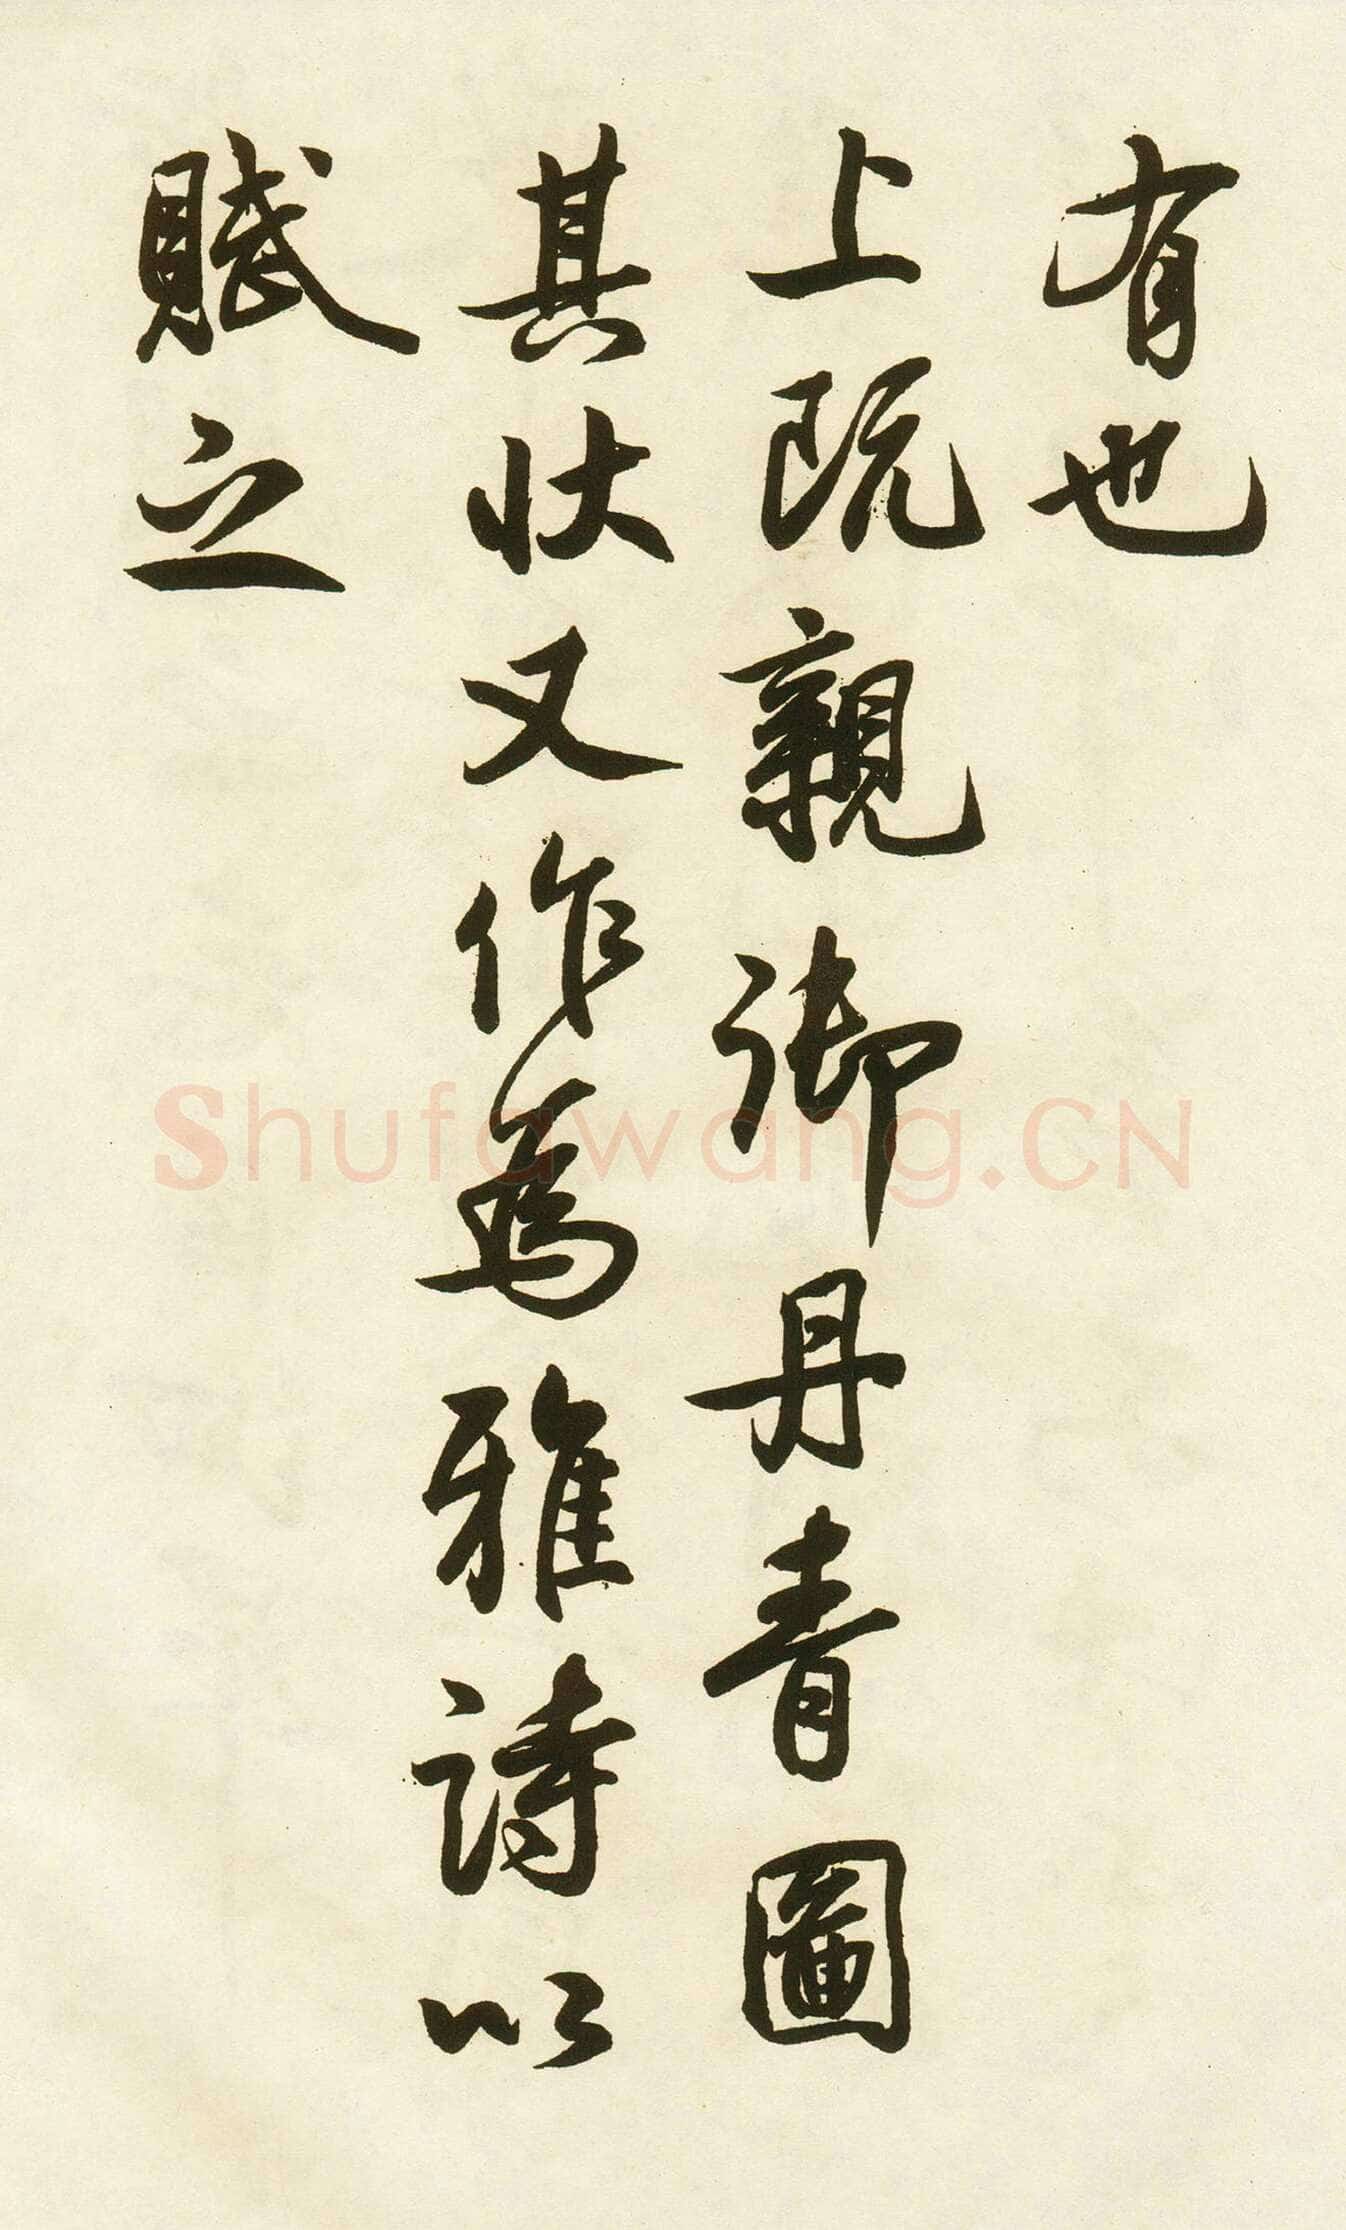 有也
上既親御丹青圖
其狀又作為雅詩以
賦之
Shufawang.CN